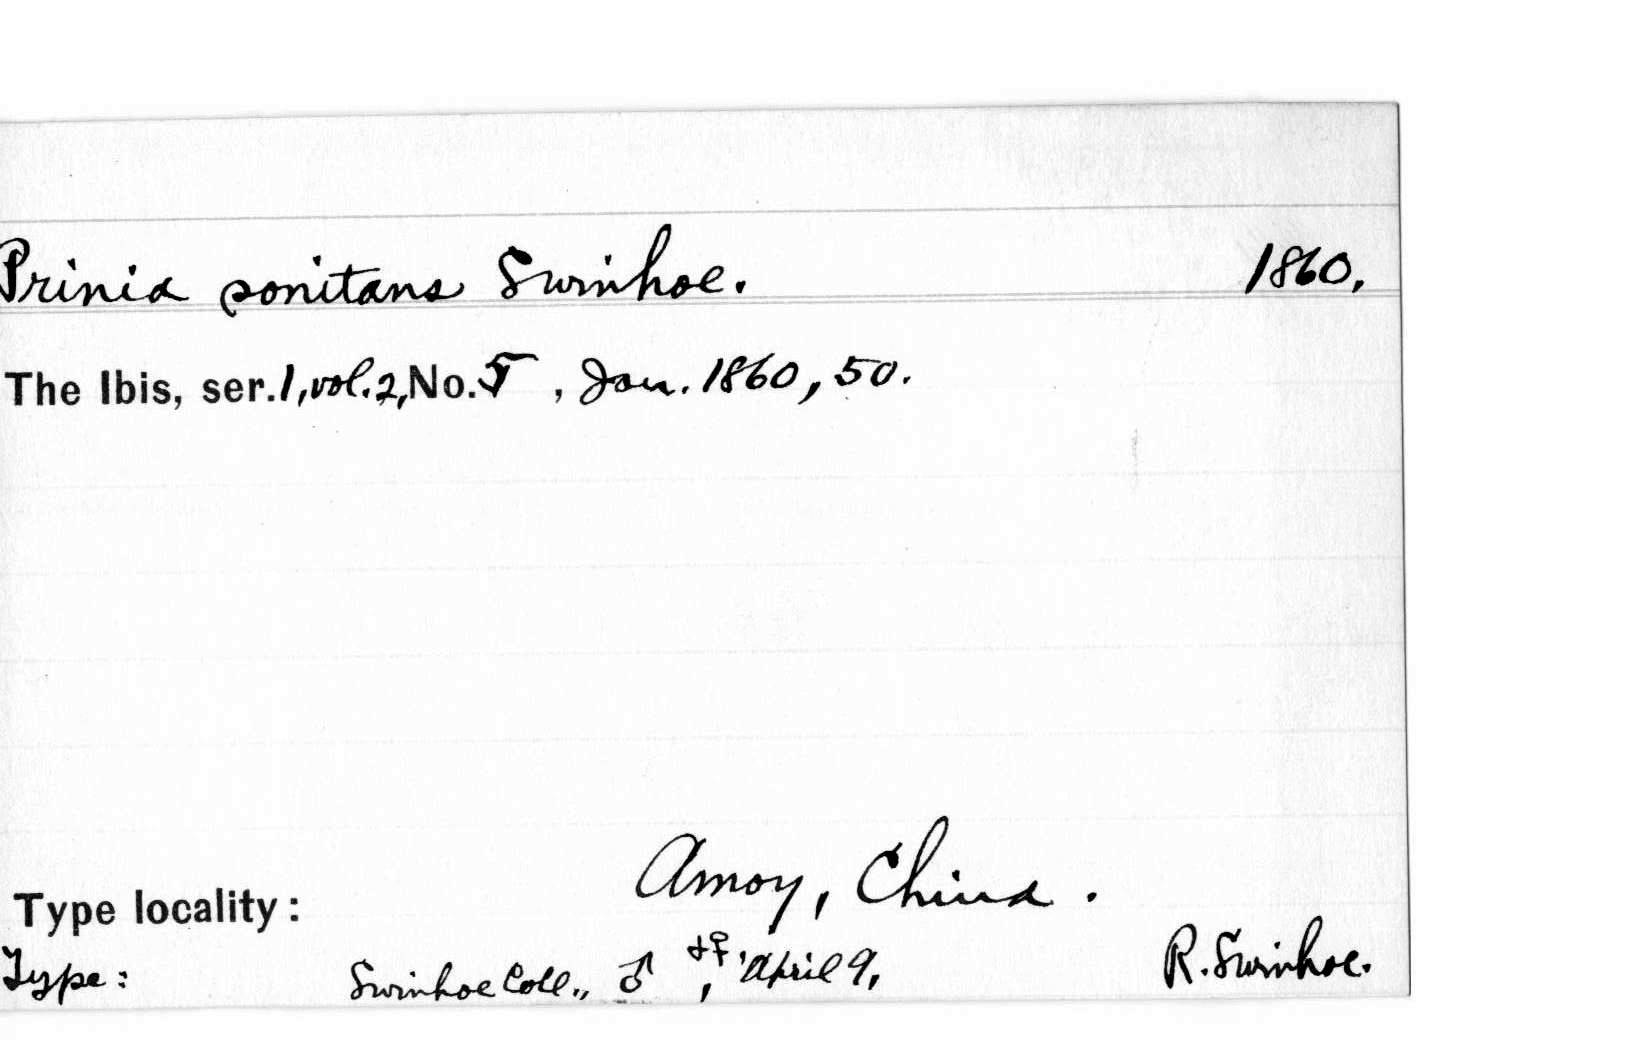 Prinia sonitans Swinhoe. 1860.
The Ibis, ser. 1, vol. 2, No. 5 , Jan. 1860, 50.
Type locality: Amoy, China.
Type: Swinhoe Coll., ♂ + ♀, 'April 9, R. Swinhoe.